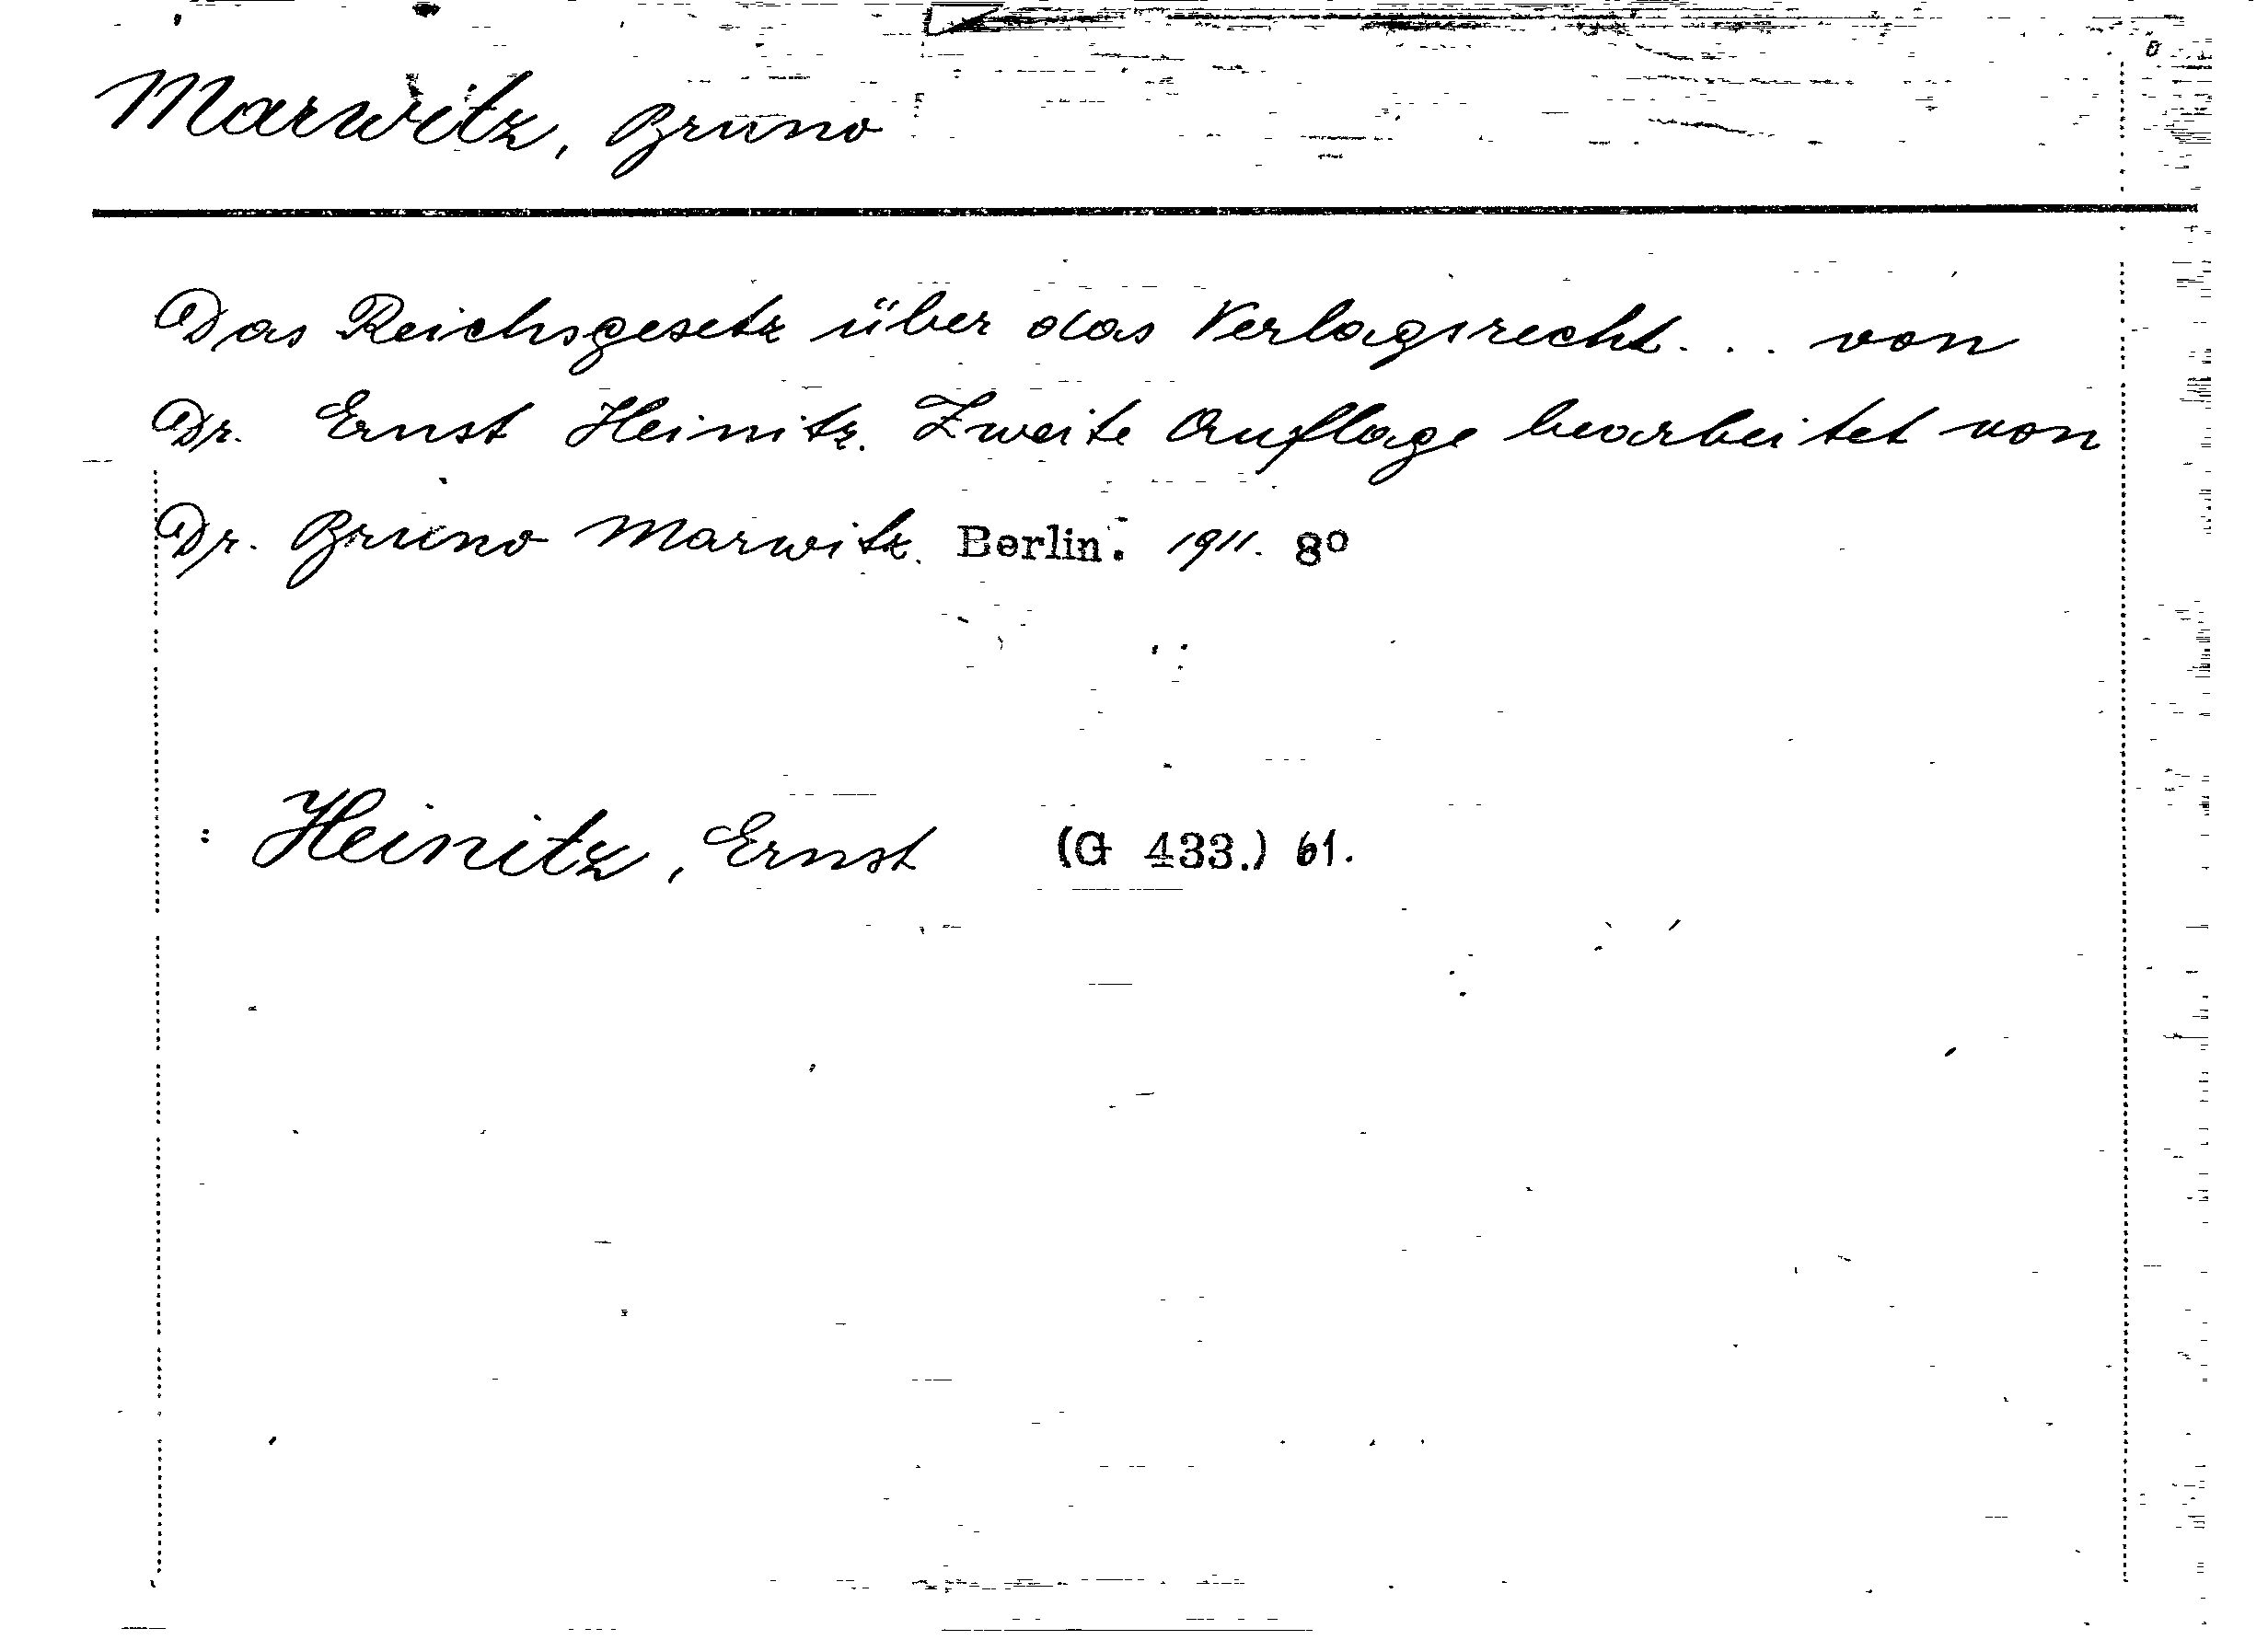 Marwitz, Bruno
Das Reichsgesetz über das Verlagsrecht... von
Dr. Ernst Heinitz. Zweite Auflage bearbeitet von
Dr. Bruno Marwitz. Berlin. 1911. 8º
: Heinitz, Ernst (G 433.) 61.